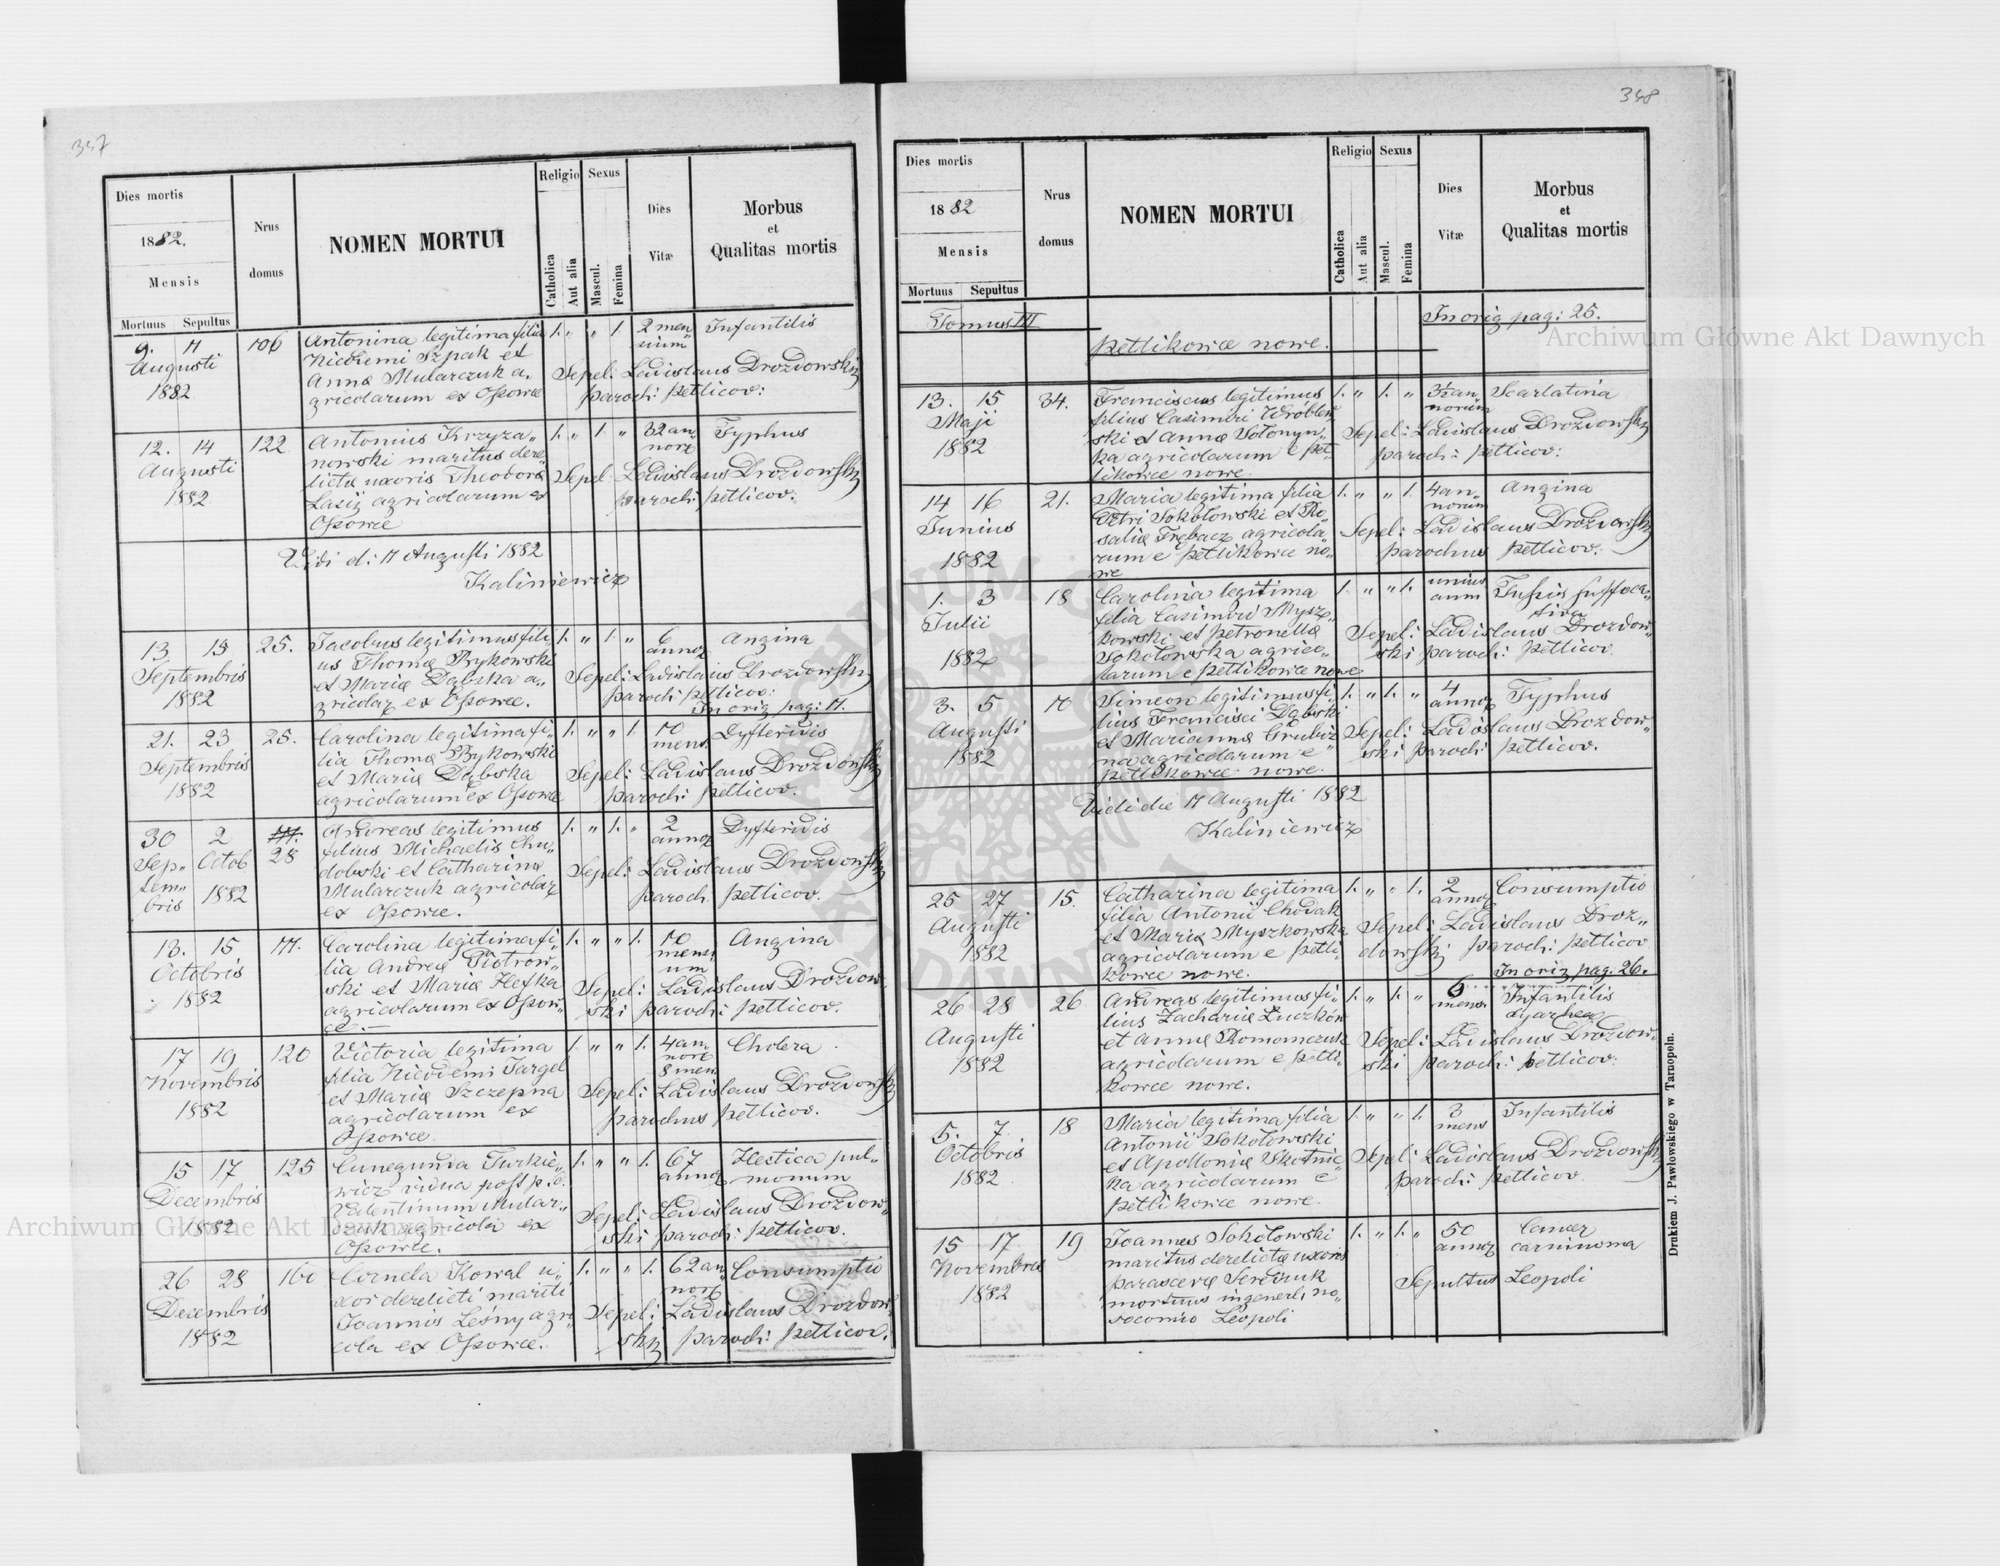 347
Dies mortis
1882.
Mensis
Mortuus Sepultus
Nrus
domus
NOMEN MORTUI
Religio
Catholica
Aut alia
Sexus
Mascul.
Femina
Dies
Vitæ
Morbus
et
Qualitas mortis
9. 11
Augusti
1882
106
Antonina legitima filia
Nicodemi Szpak et
Annæ Mularczuk a„
gricolarum ex Ossowce
1. „ „ 1.
2 men
sium
Infantilis
Sepel: Ladislaus Drozdowski
paroch: petlicov:
12. 14
Augusti
1882
122
Antonius Krzyża„
nowski maritus dere„
lictæ uxoris Theodoræ
Lasij agricolarum ex
Ossowce
1. „ 1. „
32 an„
nor
Typhus
Sepel: Ladislaus Drozdowski
paroch: petlicov:
Vidi d: 17 Augusti 1882
Kaliniewicz
13 15
Septembris
1882
25.
Jacobus legitimus fili„
us Thomæ Bykowski
et Mariæ Dąbska a„
gricolar ex Ossowce.
1. „ 1. „
6
annor
Angina
Sepel: Ladislaus Drozdowski
paroch: petlicov:
In orig pag: 17.
21. 23
Septembris
1882
25.
Carolina legitima fi„
lia Thomæ Bykowski
et Mariæ Dąbska
agricolarum ex Ossowce
1. „ „ 1.
10
mens.
Dyfteridis
Sepel: Ladislaus Drozdowski
paroch: petlicov.
30 2
Sep„ Octob
tem„
bris 1882
28
Andreas legitimus
filius Michaelis Chu„
dobski et Catharinæ
Mularczuk agricolar
ex Ossowce.
1. „ 1. „
2
annor
Dyfteridis
Sepel: Ladislaus Drozdowski
paroch. petlicov.
13. 15
Octobris
1882
77.
Carolina legitima fi„
lia Andreæ Piotrow„
ski et Mariæ Hefka
agricolarum ex Ossow„
ce.
1. „ „ 1.
10
mensi
um
Angina
Sepel: Ladislaus Drozdow„
ski paroch: petlicov.
17 19
Novembris
1882
120
Victoria legitima
filia Nicodemi Targel
et Mariæ Szczepna
agricolarum ex
Ossowce.
1. „ „ 1.
4 an
nor
8 men.
Cholera
Sepel: Ladislaus Drozdowski
parochus petlicov.
15 17
Decembris
1882
125
Cunegunda Turkie„
wicz vidua post p. d.
Valentinum Mular„
czuk agricola ex
Ossowce.
1. „ „ 1.
67
annor
Hectica pul„
monum
Sepel: Ladislaus Drozdow„
ski paroch: petlicov.
26 28
Decembris
1882
160
Cornela Kowal u„
xor derelicti mariti
Joannis Leśny agri„
cola ex Ossowce.
1. „ „ 1.
62 an
nor
Consumptio
Sepel: Ladislaus Drozdow„
ski paroch: petlicov.
348
Dies mortis
1882
Mensis
Mortuus Sepultus
Nrus
domus
NOMEN MORTUI
Religio
Catholica
Aut alia
Sexus
Mascul.
Femina
Dies
Vitæ
Morbus
et
Qualitas mortis
Tomus III
In orig pag: 25.
petlikowce nowe.
13. 15
Maji
1882
34.
Franciscus legitimus
filius Casimiri Wróblew
ski et Annæ Sołonyn„
ka agricolarum e pet„
likowce nowe.
1. „ 1. „
3½ an„
norum
Scarlatina
Sepel: Ladislaus Drozdowski
paroch: petlicov:
14 16
Junius
1882
21.
Maria legitima filia
Petri Sokołowski et Ro„
saliæ Trębacz agricola„
rum e petlikowce no„
we
1. „ „ 1.
4 an„
norum
Angina
Sepel: Ladislaus Drozdowski
parochus petlicov.
1. 3
Julii
1882
18
Carolina legitima
filia Casimiri Mysz„
kowski et petronellæ
Sokołowska agrico„
larum e petlikowce nowe
1. „ „ 1.
unius
anni
Tussis suffoca„
tiva
Sepel: Ladislaus Drozdow„
ski paroch: petlicov.
3. 5
Augusti
1882
70
Simeon legitimus fi„
lius Francisci Dąbski
et Mariannæ
na agricolarum e
petlikowce nowe.
1. „ 1. „
4
annor
Typhus
Sepel: Ladislaus Drozdow„
ski paroch: petlicov.
Vidi die 17 Augusti 1882
Kaliniewicz
25 27
Augusti
1882
15.
Catharina legitima
filia Antonii Chodak
et Mariæ Myszkowska
agricolarum e petli„
kowce nowe.
1. „ „ 1.
2
annor
Consumptio
Sepel: Ladislaus Droz„
dowski paroch: petlicov
In orig pag. 26.
26 28
Augusti
1882
26
Andreas legitimus fi„
lius Zachariæ Łuczków
et Annæ Romanczuk
agricolarum e petli„
kowce nowe.
1. „ 1. „
6
mens.
Infantilis
dyarhea
Sepel: Ladislaus Drozdow„
ski paroch: petlicov:
5. 7.
Octobris
1882
18
Maria legitima filia
Antonii Sokołowski
et Apolloniæ Skotnic„
ka agricolarum e
petlikowce nowe.
1. „ „ 1.
3
mens
Infantilis
Sepel: Ladislaus Drozdowski
paroch: petlicov.
15 17
Novembris
1882
19
Joannes Sokołowski
maritus derelictæ uxoris
parascevæ Serdziuk
mortuus in generl. no„
socomio Leopoli
1. „ 1. „
50
annor
Cancer
carninoma
Sepultus Leopoli
Drukiem J. Pawłowskiego w Tarnopoln.
Archiwum Główne Akt Dawnych
Archiwum Główne Akt Dawnych